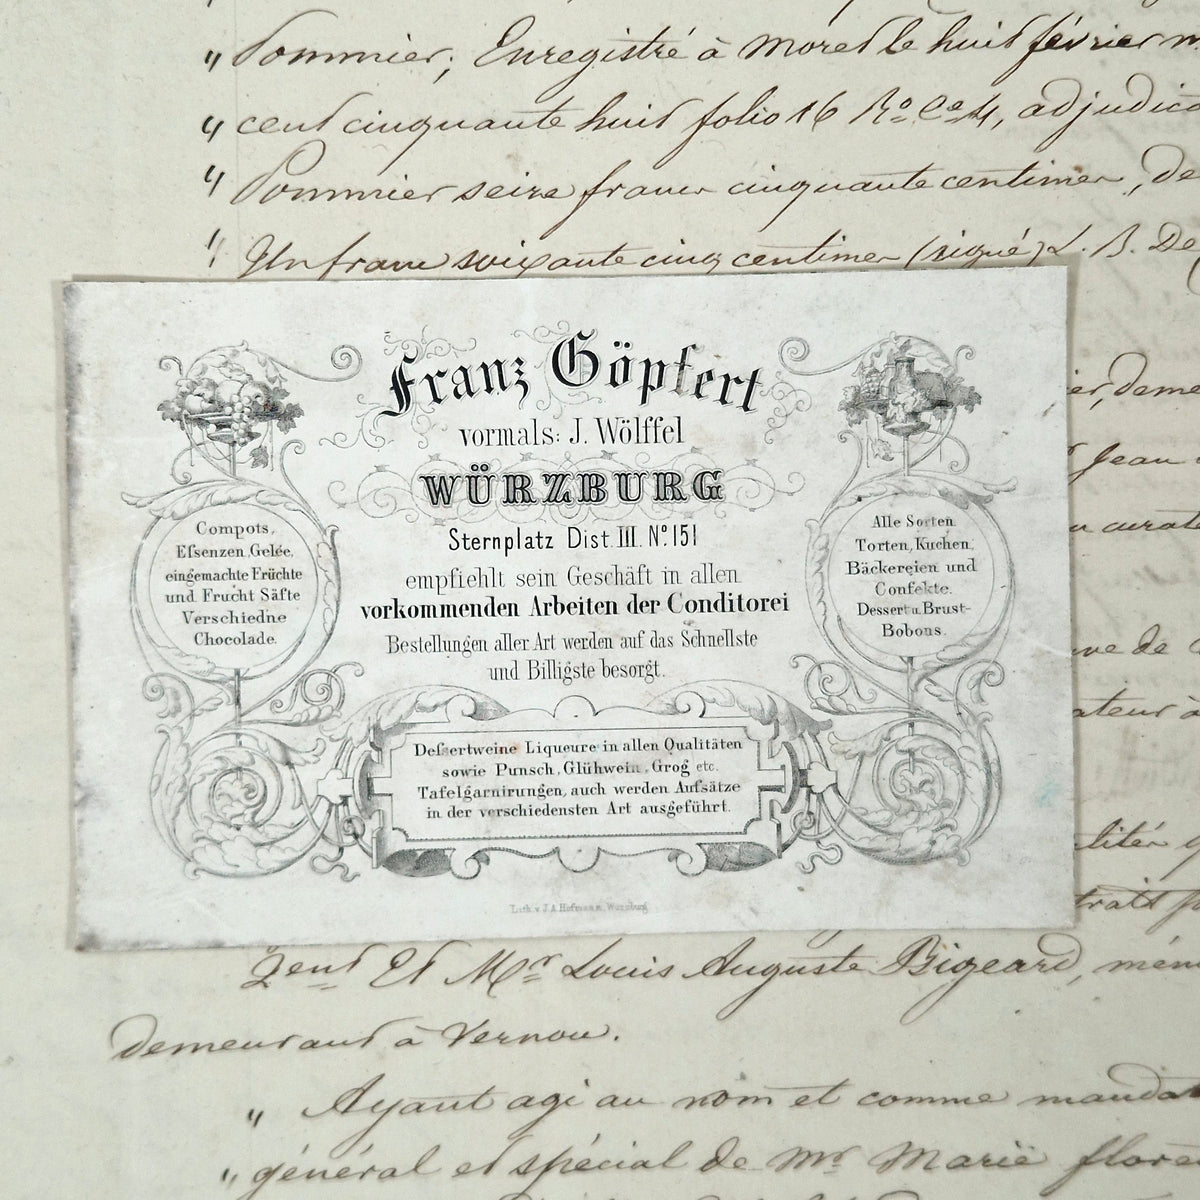 " Pommier; Enregistré à Moret le huit février m
" cent cinquante huit folio 16 Ro Ce 4, adjudica
" Pommier seize francs cinquante centimes, de
" Un franc soixante cinq centimes (signé) L. B. De
Franz Göpfert
vormals: J. Wölffel
WÜRZBURG
Sternplatz Dist. III. No. 151
empfiehlt sein Geschäft in allen
vorkommenden Arbeiten der Conditorei
Bestellungen aller Art werden auf das Schnellste
und Billigste besorgt.
Compots,
Eſsenzen, Gelée,
eingemachte Früchte
und Frucht Säfte
Verschiedne
Chocolade.
Alle Sorten
Torten, Kuchen,
Bäckereien und
Confekte.
Dessert u. Brust-
Bobons.
Deſsertweine Liqueure in allen Qualitäten
sowie Punsch, Glühwein, Grog etc.
Tafelgarnirungen, auch werden Aufsätze
in der verschiedensten Art ausgeführt.
Lith. v. J. A. Hofmann, Würzburg
ier, deme
Jean
curate
ve de
ateur à
trait
2ent Et Mr Louis Auguste Bigeard, mém
demeurant à Vernou.
" Ayant agi au nom et comme mandat
" général et spécial de Mr Marie flore